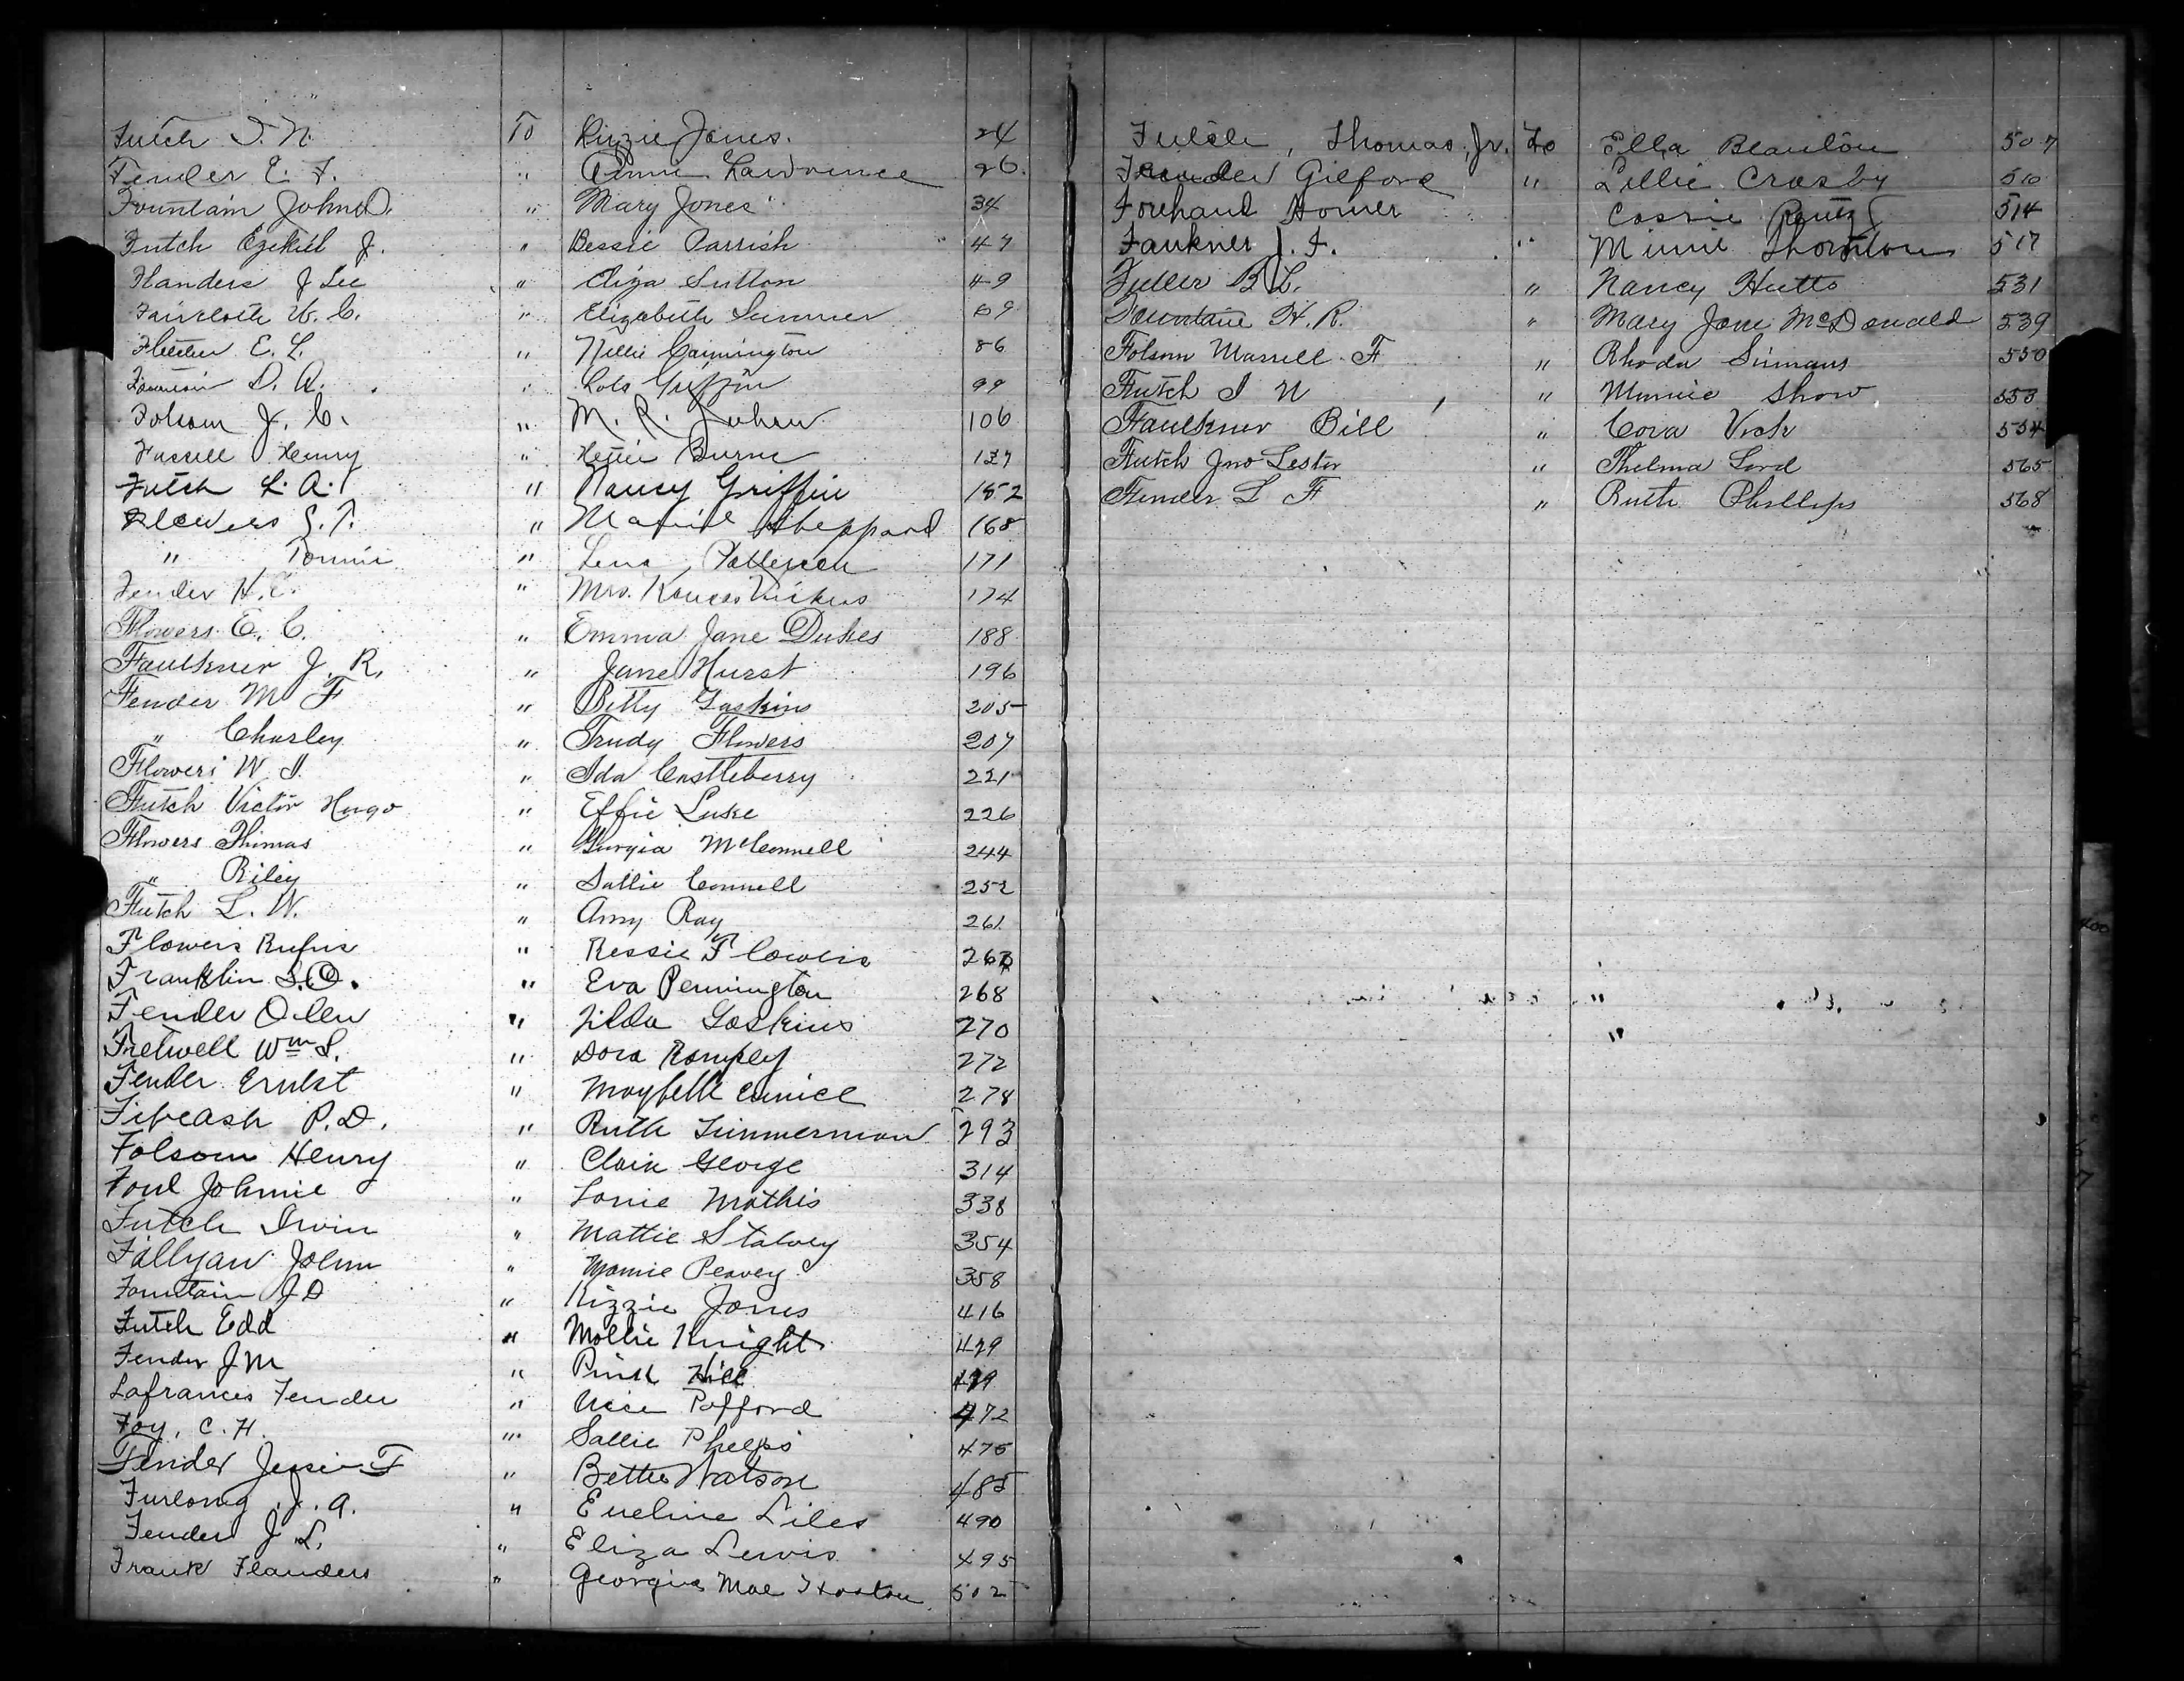 Futch I. N. To Kizzie Jones. 24
Fender E. F. " Annie Lawrence 26.
Fountain John D. " Mary Jones 34
Futch Ezekiel J. " Bessie Parrish 47
Flanders J Lee " Eliza Sutton 49
Faircloth W. C. " Elizabeth Sumner 69
Fletcher E. L. " Nellie 86
D. A. " Lola Griffin 99
Folsom J. C. " M. R. 106
Fussell Henry " 137
Futch L. A. " Nancy Griffin 152
Flowers S. T. " Mamie Sheppard 168
" Tommie " Lena Patterson 171
Fender H. C. " Mrs. Vickers 174
Flowers E. C. " Emma Jane Dukes 188
Faulkner J. R. " Jane Hurst 196
Fender M F " Betty Gaskins 205
" Charley " Trudy Flowers 207
Flowers W. I. " Ida Castleberry 221
Futch Victor Hugo " Effie Luke 226
Flowers Thomas " Georgia McConnell 244
" Riley " Sallie Connell 252
Futch L. W. " Amy Ray 261
Flowers Rufus " Ressie Flowers
Franklin S. O. " Eva Pennington 268
Fender Olen " Gaskins 270
Fretwell Wm S. " Dora 272
Fender Ernest " Maybelle Eunice 278
Fiveash P. D. " Ruth Timmerman 293
Folsom Henry " Clair George 314
Johnnie " Lonie Mathis 338
Futch Irvin " Mattie Stalvey 354
Fillyaw John " Mamie Peavey 358
Fountain J D " Kizzie Jones 416
Futch Edd " Mollie Knight 429
Fender J M " Pink Hill
Lafrances Fender " Pafford 472
Foy, C. H. " Sallie Phelps 475
Fender Jessie F " Bettie Watson 485
Furlong J. A. " Eveline Liles 490
Fender J L. " Eliza Lewis 495
Frank Flanders " Georgia Mae 502
Futch, Thomas, Jr. To Ella Blanton 507
Gilford " Lillie Crosby 510
Forehand Homer Cassie Rentz 514
Faulkner J. F. " Minnie Thornton 517
Fuller B L. " Nancy Hutto 531
Fountain H. R. " Mary Jane McDonald 539
Folsom F " Rhoda Sirmans 550
Futch I N " Minnie Shaw 553
Faulkner Bill " Cora Vick 554
Futch Jno Lester " Thelma Lord 565
Fender L F " Ruth Phillips 568